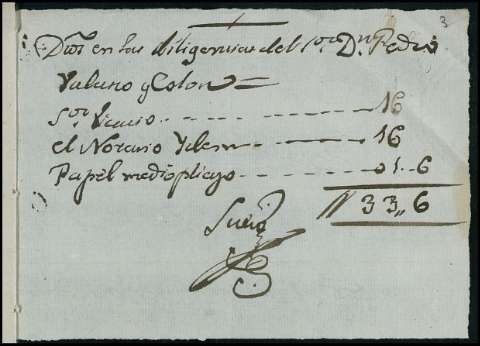 3
Dros en las diligencias del Sor Dn Pedro
y Colon =
Sor Vicario 16
el Notario Ydem 16
Papel medio pliego 01..6
33,,6